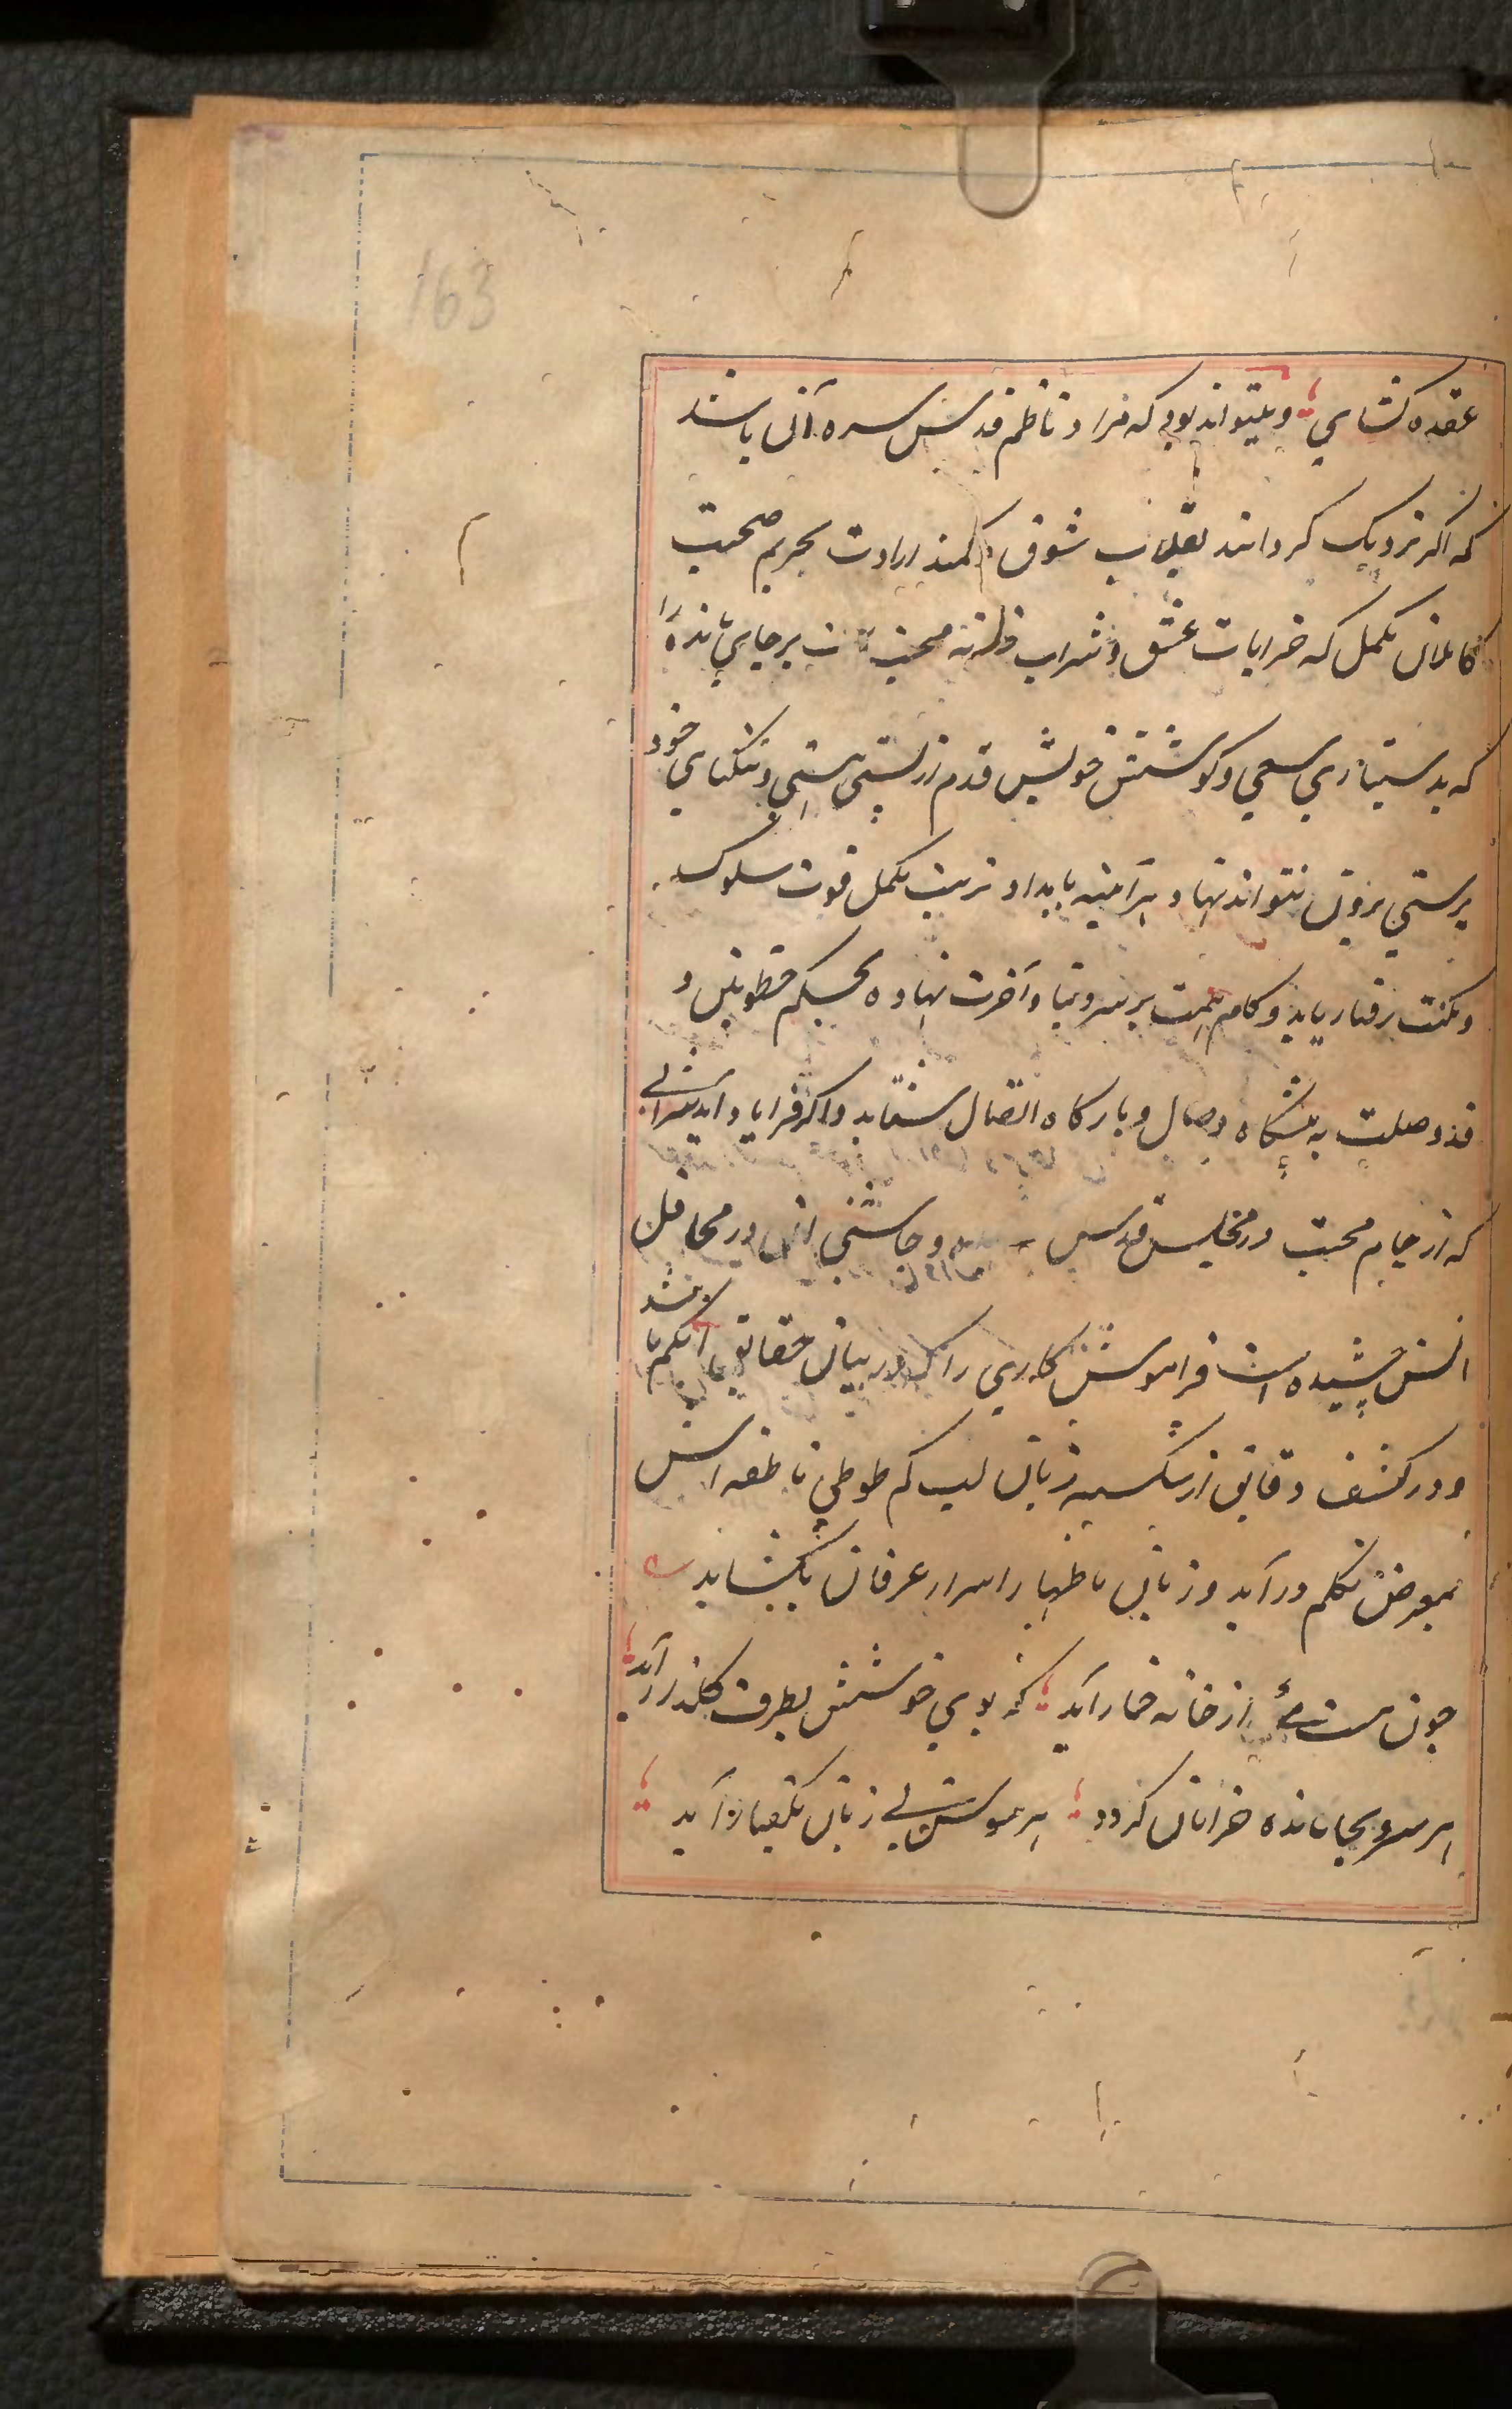 163
عقده کشای و میتواند بود که مراد ناظم قدس سره آن باشد
که اگر نزدیک کردانند بقلاب شوق و کمند ارادت بحریم صحبت
کاملان مکمل که خرابات عشق و شراب محبت برجای مانده را
که بدستیاری سعی و کوشش خویش قدم از پستی هستی و تنکنای خود
پرستی برون نتواند نهاد هرآینه بامداد تربیت مکمل قوت سلوک
و مکنت رفتار یابد و کام همت بر سر دنیا و آخرت نهاده بحکم خطوتین و
قد وصلت به پیشگاه وصال و بارکاه اتصال شتابد و اکر فرا یاد آید شرابی
که از جام محبت در مجلس قدس و چاشنی آن در محافل
انس چشیده است فراموش کاری را که در بیان حقایق ابکم باشد
و در کشف دقایق از شکسته زبان لب کم طوطی ناطقه اش
بمعرض تکلم درآید و زبان باظهار اسرار عرفان بکشاید
چون مست می از خانه خمار آید که بوی خوشش بطرف گلزار آید
هر سرو بجا مانده خرامان کردد هر سوسن بی زبان بگفتار آید